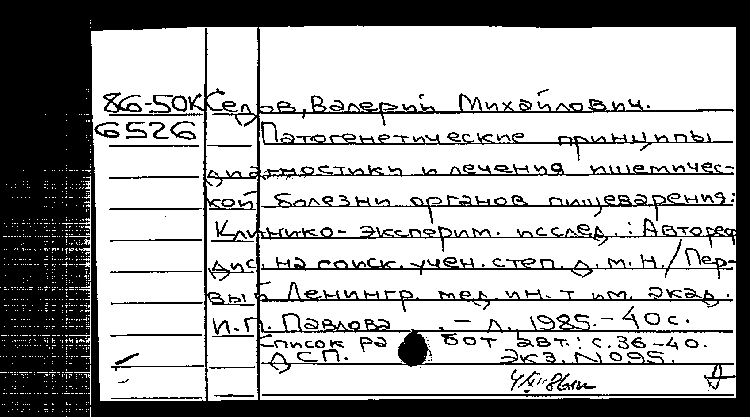 86-50К Седов, Валерий Михайлович.
6526 Патогенетические принципы
диагностики и лечения ишемичес-
кой болезни органов пищеварения:
Клинико-эксперим. исслед.: Автореф
дис. на соиск. учен. степ. д. м. н. / Пер-
вый Ленингр. мед. ин-т им. акад.
И. П. Павлова. - Л., 1985. - 40 с.
Список работ авт.: с. 36-40.
ДСП. Экз. N 095.